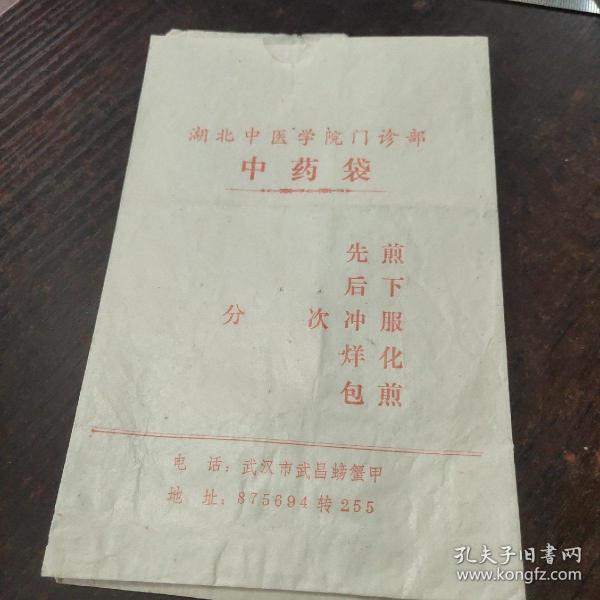 湖北中医学院门诊部
中药袋
先煎
后下
分 次冲服
烊化
包煎
电 话：武汉市武昌螃蟹甲
地 址：875694转255
孔夫子旧书网
www.kongfz.com